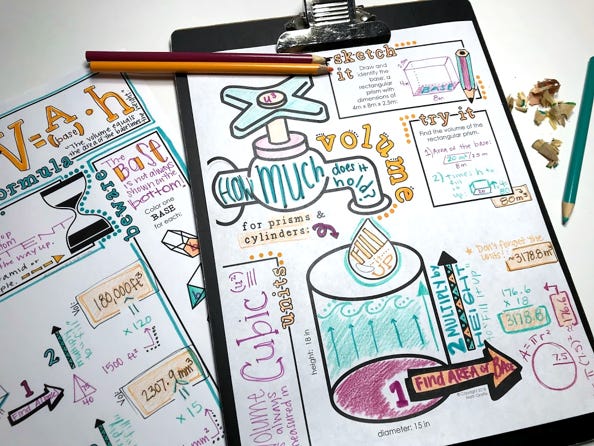 V=A·h
(base)
height
"The volume equals
the area of the base times
formula
beware
The
BASE
is not always
shown on the
bottom!
Color one
BASE
for each:
the way up.
180,000 ft³
x 120
1500 ft²
2307.9 mm³
x 15
sketch
it
Draw and
identify the
base: a
rectangular
prism with
dimensions of
4m x 8m x 2.5m:
BASE
8m
try it
Find the volume of the
rectangular prism.
1) Area of the base:
20 m²
2.5m
8m
2) Times h to
fill
up
80m³
u³
volume
How much does it
hold?
for prisms &
cylinders:
FILL
UP
units
Volume
is always
measured in
Cubic
height: 18 in
diameter: 15 in
1 FIND AREA OF BASE
2 MULTIPLY by
HEIGHT
TO FILL IT UP
* Don't forget the
units!!
~3178.8 in³
176.6
x 18
3178.8
176.6
A=πr²
7.5
Copyright © 2016
Math Giraffe